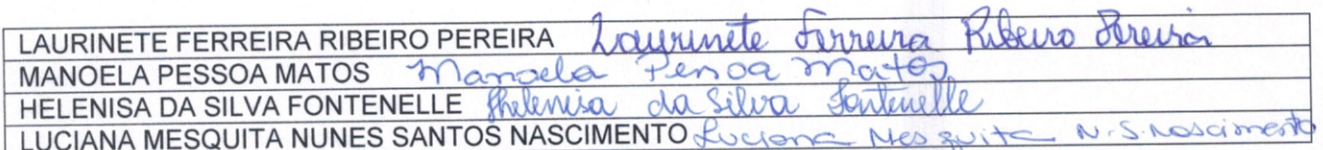 LAURINETE FERREIRA RIBEIRO PEREIRA Laurinete Ferreira Ribeiro Pereira
MANOELA PESSOA MATOS Manoela Pessoa Matos
HELENISA DA SILVA FONTENELLE Helenisa da Silva Fontenelle
LUCIANA MESQUITA NUNES SANTOS NASCIMENTO Luciana Mesquita N. S. Nascimento